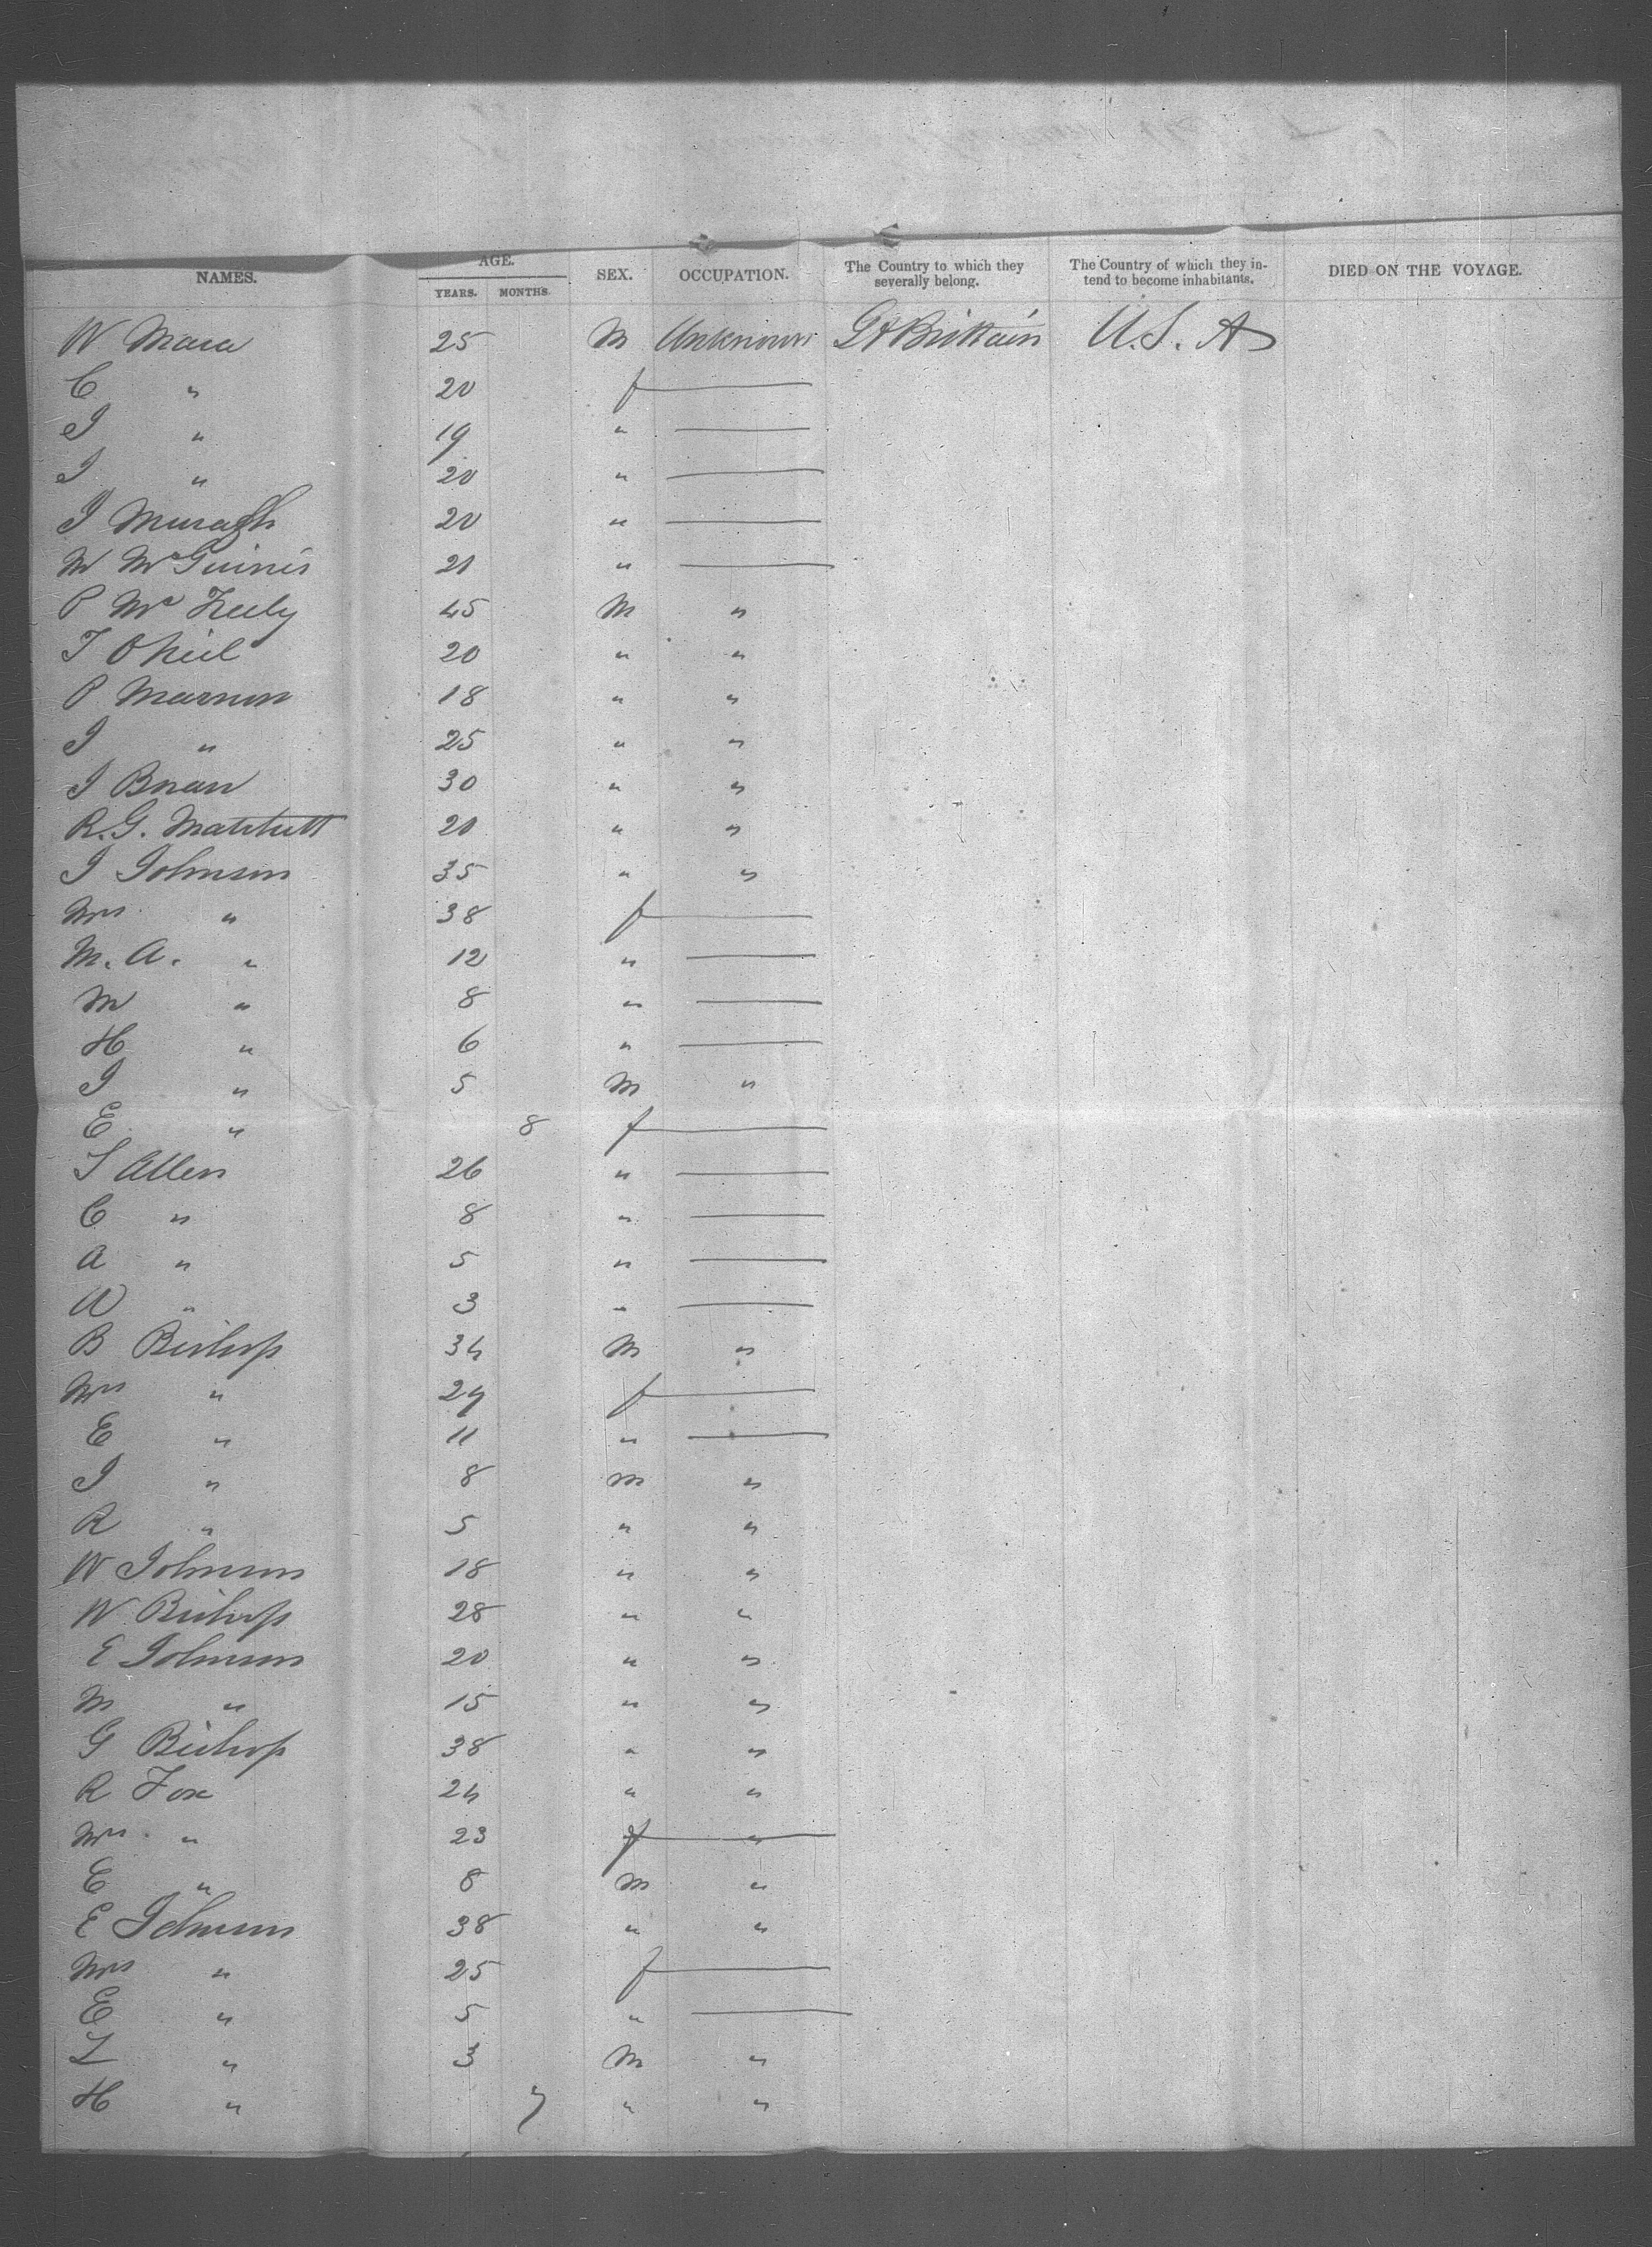 NAMES. AGE. SEX. OCCUPATION. The Country to which they severally belong. The Country of which they intend to become inhabitants. DIED ON THE VOYAGE.
YEARS. MONTHS.
W Mara 25 M Unknown Gt Brittain U.S.A
C " 20 f —
J " 19 " —
J " 20 " —
J Muragh 20 " —
M McGuinis 21 " —
P Mc 45 M "
T ONeil 20 " "
P Marnon 18 " "
J " 25 " "
J Brian 30 " "
R.G. Matchett 20 " "
J Johnson 35 " "
Mrs " 38 f —
M. A. " 12 " —
M " 8 " —
H " 6 " —
J " 5 M "
E " 8 f —
S Allen 26 " —
C " 8 " —
A " 5 " —
W " 3 " —
B Bishop 34 M "
Mrs " 29 f —
E " 11 " —
J " 8 M "
R " 5 " "
W Johnson 18 " "
W Bishop 28 " "
E Johnson 20 " "
M " 15 " "
G Bishop 38 " "
R Fox 24 " "
Mrs " 23 f "
E " 8 M "
E Johnson 38 " "
Mrs " 25 f —
E " 5 " —
L " 3 M "
H " 7 " "